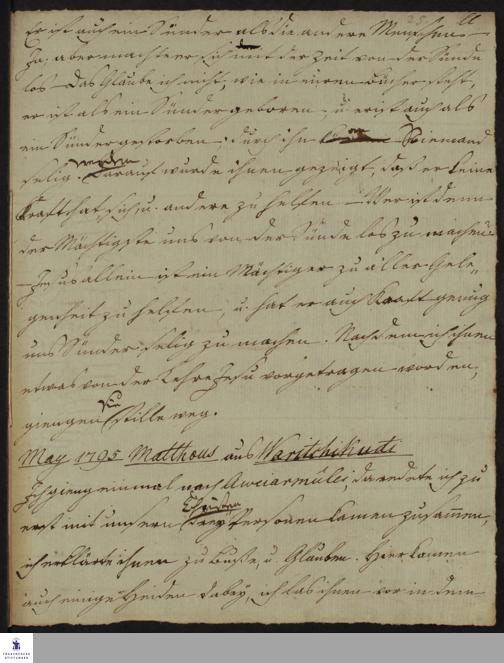 Er ist auch ein Sünder als die andere Menschen
Ja; aber machte er sich mit der Zeit von der Sünde
los – Das Glaube ich nicht, wie in euren Bücher steht,
er ist als ein Sünder geboren, u. er ist auch als
ein Sünder gestorben; durch ihn kan Niemand
selig werden. Darauf wurde ihnen gezeigt, daß er keine
Kraft hat, sich, u. andere zu helfen – Wer ist denn
der Mächtigste uns von der Sünde los zu machen?
– Jesus allein ist ein Mächtiger zu aller Gele-
genheit zu helfen, u. hat er auch Kraft genug
uns Sünder selig zu machen. Nachdem ich ihnen
etwas von der Lehre Jesu vorgetragen worden,
giengen Sie stille weg.
May 1795 Matthous aus Waritchikudi
Ich gieng einmal nach Aweiarmülei, da redete ich zu
erst mit unsern Christen Personen kamen zusammen,
ich erklärte ihnen zu Buße, u. Glauben. Hier kamen
auch einige Heiden dabey, ich las ihnen vor in dem
FRANCKESCHE
STIFTUNGEN